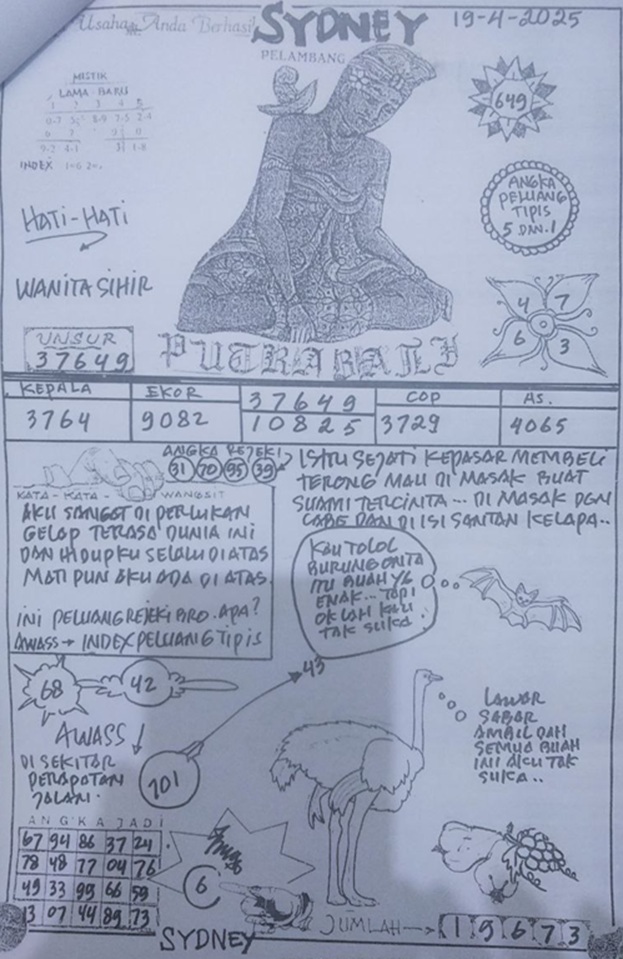 Usaha Anda Berhasil
SYDNEY
19-4-2025
PELAMBANG
MISTIK
LAMA - BARU
1 2 3 4 5
0-7 8-9 7-5 2-4
9-2 4-1 3 1-8
INDEX
649
ANGKA
PELUANG
TIPIS
5 DAN 1
HATI-HATI
WANITA SIHIR
4 7
6 3
UNSUR
37649
PUTRA BALI
KEPALA
3764
EKOR
9082
37649
10825
COP
3729
AS.
4065
ANGKA REJEKI
31 70 95 39
KATA - KATA - WANGSIT
AKU SANGAT DI PERLUKAN
GELAP TERASA DUNIA INI
DAN HIDUPKU SELALU DIATAS
MATI PUN AKU ADA DI ATAS.
INI PELUANG REJEKI BRO. APA?
AWASS → INDEX PELUANG TIPIS
ISTRI SEJATI KEPASAR MEMBELI
TERONG MAU DI MASAK BUAT
SUAMI TERCINTA... DI MASAK DGN
CABE DAN DI ISI SANTAN KELAPA..
KAU TOLOL
BURUNG ONTA
ITU BUAH YG
ENAK... TAPI
OK LAH KAU
TAK SUKA.
43
68
42
AWASS!
DI SEKITAR
PERAPATAN
JALAN.
701
LAWAR
SABAR
AMBIL DAH
SEMUA BUAH
INI AKU TAK
SUKA..
ANGKA JADI
67 94 86 37 24
78 48 77 04 76
49 33 99 66 59
13 07 44 89 73
6
SYDNEY
JUMLAH → 19673